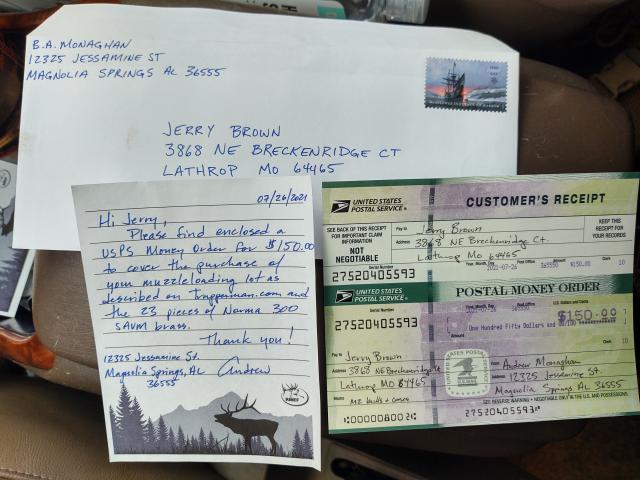 B.A. MONAGHAN
12325 JESSAMINE ST
MAGNOLIA SPRINGS AL 36555
JERRY BROWN
3868 NE BRECKENRIDGE CT
LATHROP MO 64465
07/26/2021
Hi Jerry,
Please find enclosed a
USPS Money Order for $150.00
to cover the purchase of
your muzzleloading lot as
described on Trapperman.com and
the 23 pieces of Norma 300
SAUM brass.
Thank you!
12325 Jessamine St.
Magnolia Springs, AL Andrew
36555
UNITED STATES
POSTAL SERVICE
CUSTOMER'S RECEIPT
SEE BACK OF THIS RECEIPT
FOR IMPORTANT CLAIM
INFORMATION
NOT
NEGOTIABLE
Pay to Jerry Brown
Address 3868 NE Breckenridge Ct.
Lathrop Mo 64465
KEEP THIS
RECEIPT FOR
YOUR RECORDS
Serial Number Year, Month, Day Post Office Amount Clerk
27520405593 2021-07-26 365550 $150.00 10
UNITED STATES
POSTAL SERVICE
POSTAL MONEY ORDER
Serial Number Year, Month, Day Post Office U.S. Dollars and Cents
27520405593 2021-07-26 365550 $150.00
One Hundred Fifty Dollars and 00/100
Clerk 10
Pay to Jerry Brown
Address 3868 NE Breckenridge Ct
Lathrop MO 64465
Memo
UNITED STATES POSTAL
From Andrew Monaghan
Address 12325 Jessamine St.
Magnolia Springs AL 36555
SEE REVERSE WARNING • NEGOTIABLE ONLY IN THE U.S. AND POSSESSIONS
27520405593